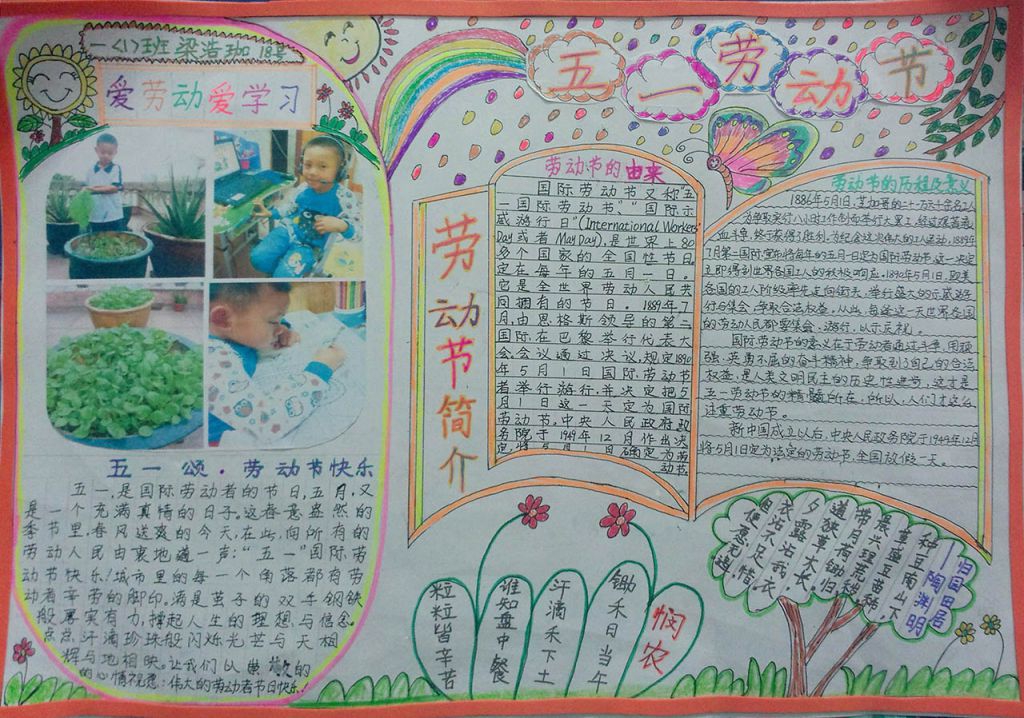 一〈1〉班 梁浩珈 18号
爱劳动爱学习
五一劳动节
五一颂·劳动节快乐
五一,是国际劳动者的节日,五月,又
是一个充满真情的日子,这春意盎然的
季节里,春风送爽的今天,在此,向所有的
劳动人民由衷地道一声:“五一”国际劳
动节快乐!城市里的每一个角落都有劳
动者辛劳的脚印。满是茧子的双手钢铁
般厚实有力,撑起人生的理想与信念。
点点汗滴珍珠般闪烁光芒与天相
辉与地相映。让我们以崇敬的
的心情祝愿:伟大的劳动者节日快乐!
劳动节简介
劳动节的由来
国际劳动节又称“五
一国际劳动节”、“国际示
威游行日”(International Workers'
Day或者May Day),是世界上80
多个国家的全国性节日。
定在每年的五月一日。
它是全世界劳动人民共
同拥有的节日。1889年7
月,由恩格斯领导的第二
国际在巴黎举行代表大
会。会议通过决议,规定1890
年5月1日国际劳动节
者举行游行,并决定把5
月1日这一天定为国际
劳动节。中央人民政府政
务院于1949年12月作出决
定,将5月1日确定为劳
动节。
劳动节的历程及意义
1886年5月1日,芝加哥的二十一万六千余名工人
为争取实行八小时工作制而举行大罢工,经过艰苦的
血斗争,终于获得了胜利。为纪念这次伟大的工人运动,1889年
7月第二国际宣布将每年的五月一日定为国际劳动节。这一决定
立即得到世界各国工人的积极响应。1890年5月1日,欧美
各国的工人阶级率先走向街头,举行盛大的示威游
行与集会,争取合法权益。从此,每逢这一天世界各国
的劳动人民都要集会、游行,以示庆祝。
国际劳动节的意义在于劳动者通过斗争,用顽
强、英勇不屈的奋斗精神,争取到了自己的合法
权益,是人类文明民主的历史性进步,这才是
五一劳动节的精髓所在。所以,人们才这么
注重劳动节。
新中国成立以后,中央人民政务院于1949年12月
将5月1日定为法定的劳动节,全国放假一天。
悯农
锄禾日当午
汗滴禾下土
谁知盘中餐
粒粒皆辛苦
归园田居
——陶渊明
种豆南山下,
草盛豆苗稀。
晨兴理荒秽,
带月荷锄归。
道狭草木长,
夕露沾我衣。
衣沾不足惜,
但使愿无违。